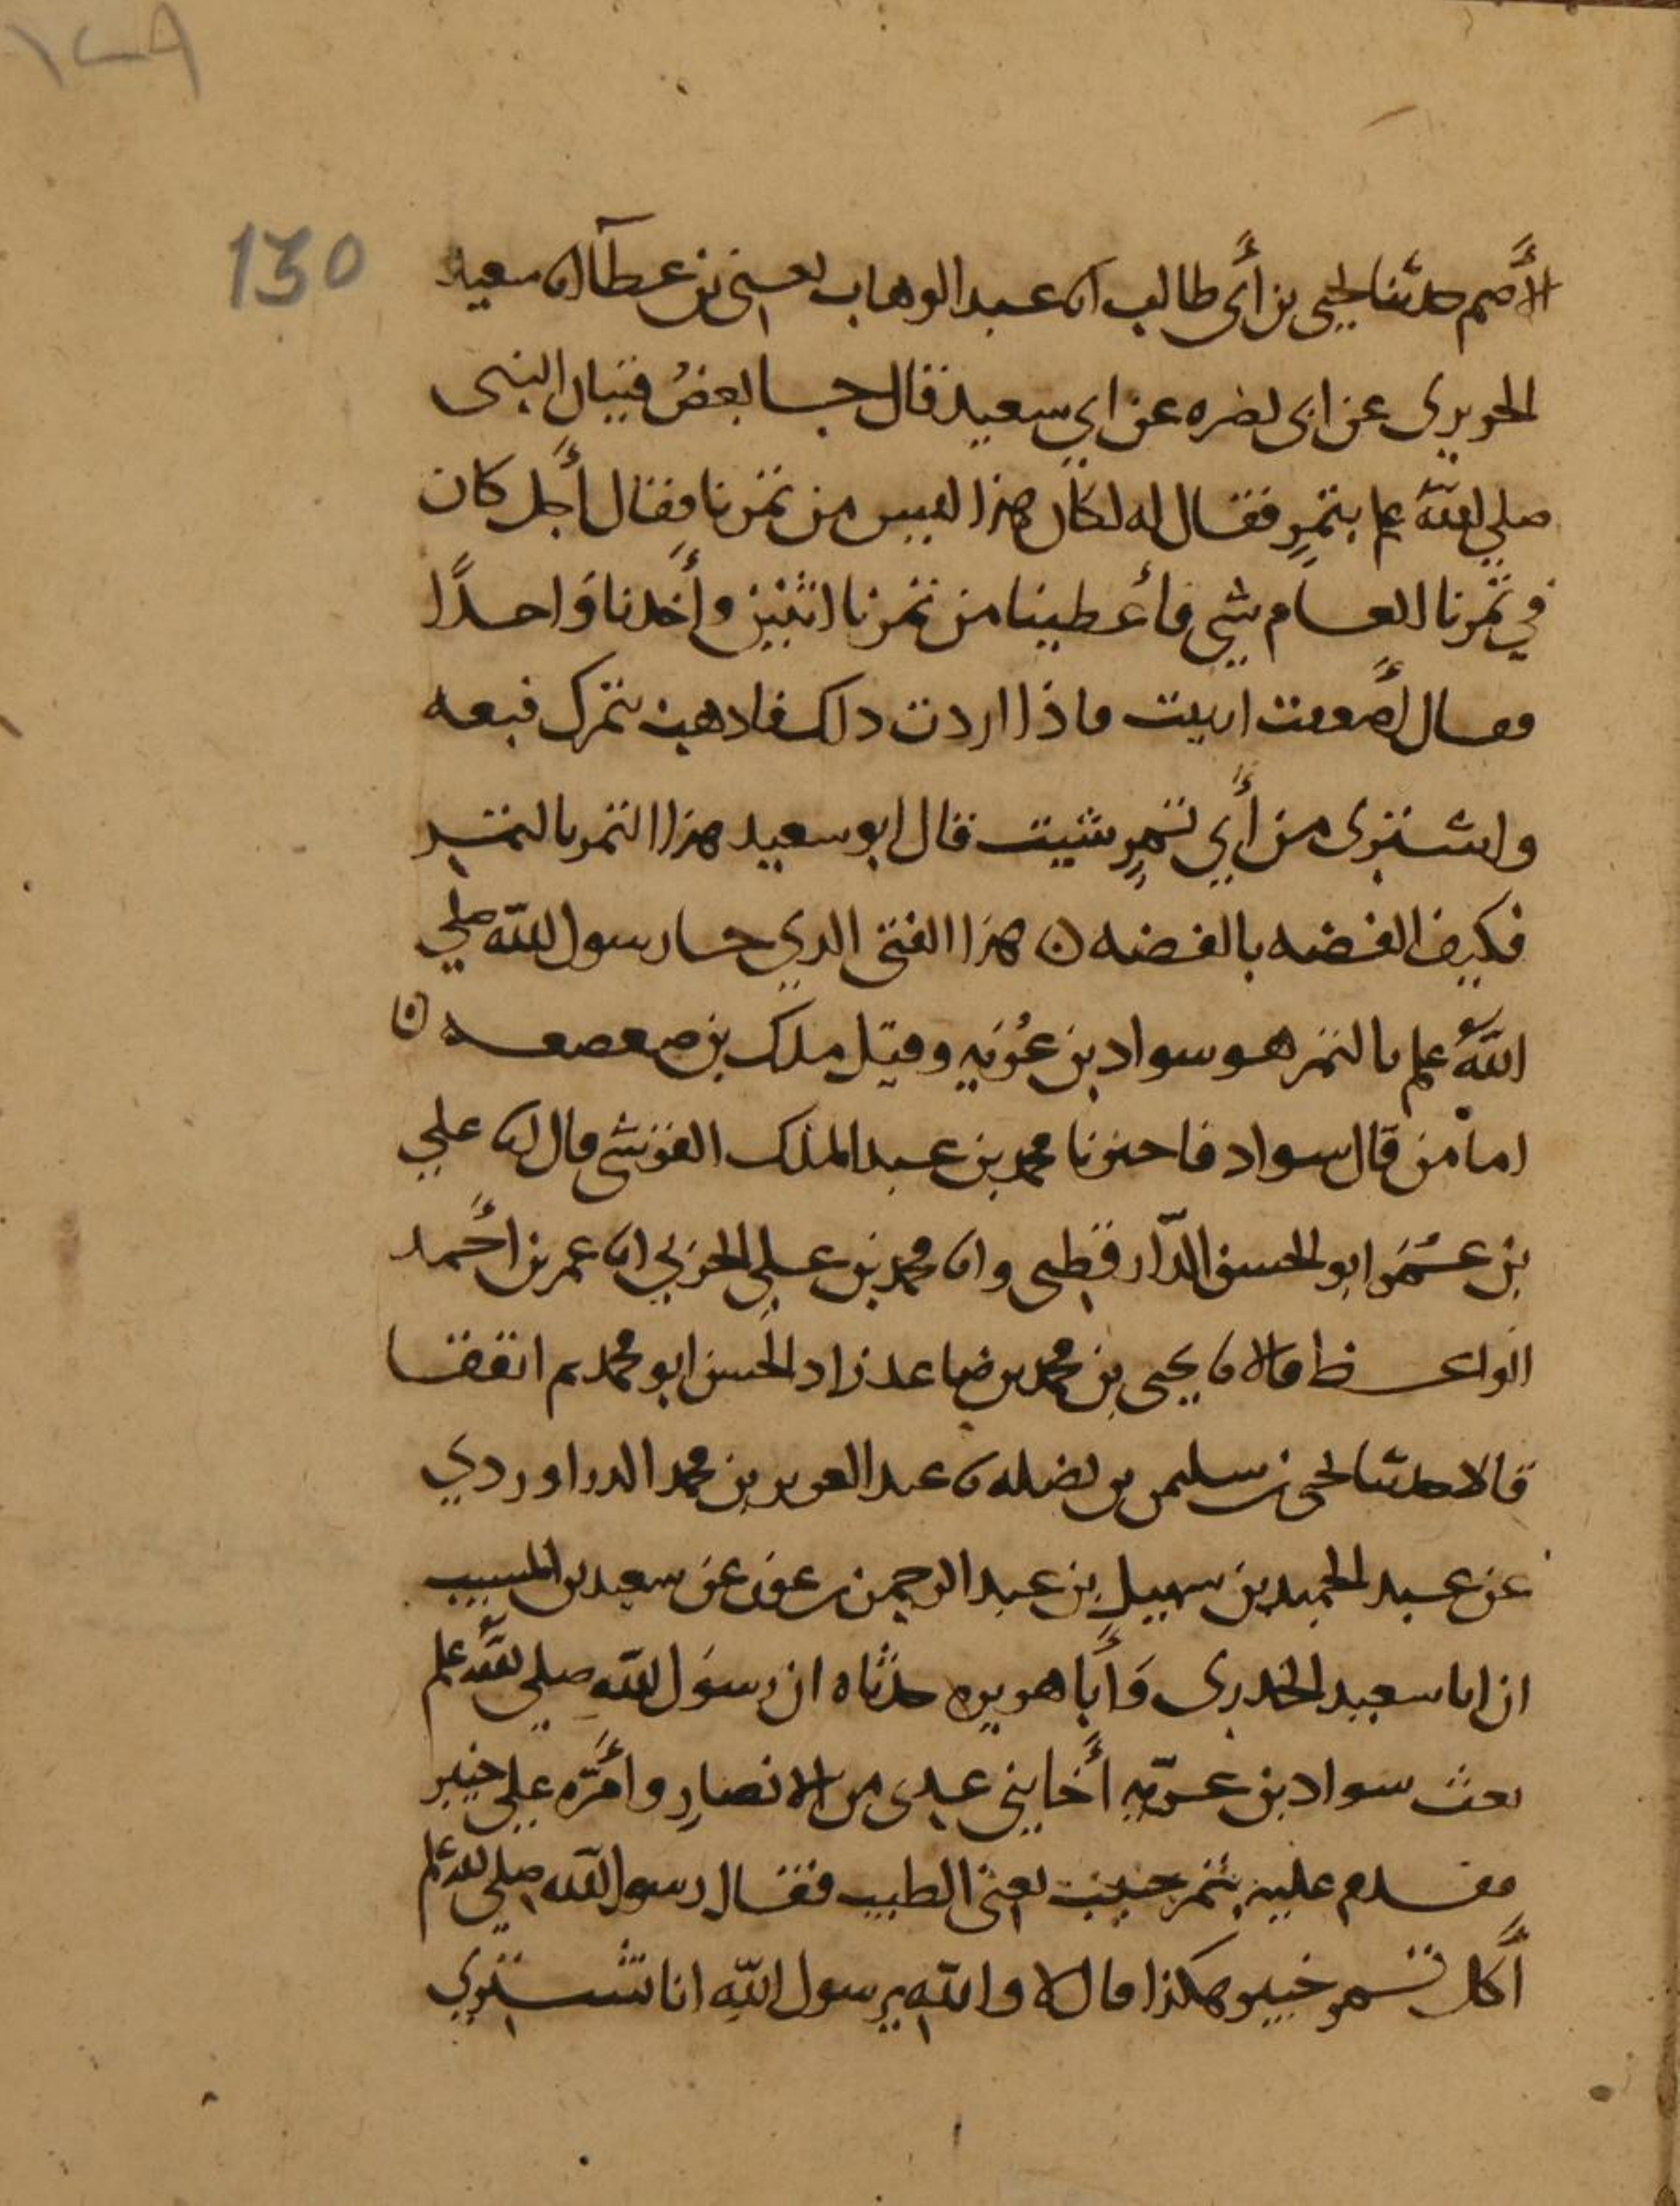 ١٢٩
130
الأصم حدثنا يحيى بن أبي طالب انا عبد الوهاب يعني بن عطآ انا سعيد
الجريري عن ابي نضره عن ابي سعيد قال جا بعضُ فتيان النبى
صلي الله عليه بتمرٍ فقال له لكأن هذا ليس من تمرنا فقال أجل كان
في تمرنا العام شي فأعطينا من تمرنا اثنين وأخذنا وَاحدًا
فقال أضعفت اربيت فاذا اردت ذلك فاذهب بتمرك فبعه
واشترى من أي تمرٍ شيت قال ابو سعيد هذا التمر بالتمر
فكيف الفضه بالفضه ن هذا الفتى الذي جا رسول الله صلي
اللهُ عليه بالتمر هو سواد بن غُزيه وقيل ملك بن صعصعه ن
اما من قال سواد فاخبرنا محمد بن عبد الملك القرشي قال انا علي
بن عُمَر ابو الحسن الدّارقطني وانا محمد بن علي الحربي انا عمر بن أحمد
الواعظ قالا نا يحيى بن محمد بن صاعد زاد الحسن ابو محمد ثم اتفقا
قالا حدثنا يحيى بن سليمن بن نضله نا عبد العزيز بن محمد الدراوردي
عن عبد الحميد بن سهيلٍ بن عبد الرحمن بن عوف عن سعيد بن المسيب
ان ابا سعيد الخدرى وَأبا هريره حدثاه ان رسوَل الله صلي الله عليه
بعث سواد بن غزيّه أخا بني عدى من الانصارِ وأمّره على خيبر
فقدم عليه بتمر جنيب يعني الطيب فقال رسول الله صلي الله عليه
أكل تمر خيبر هكذا قال لا والله يرسول اللهِ انا نشتري